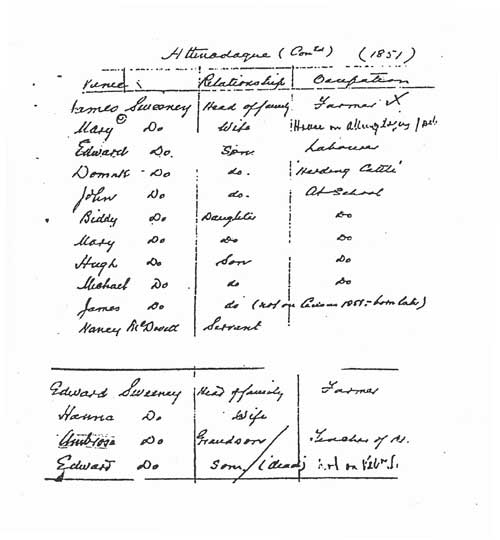 Attinadague (Contd) (1851)
Names Relationship Occupation
James Sweeney Head of family Farmer X
Mary Do Wife House
Edward Do. Son Labourer
Do. do. Herding Cattle
John Do do. At School
Biddy Do Daughter Do
Mary Do Do Do
Hugh Do Son Do
Michael Do do Do
James Do do (not on Census 1851 - born late)
Nancy McDevitt Servant
Edward Sweeney Head of family Farmer
Hanna Do Wife
Ambrose Do Grandson Teacher of N.
Edward Do Son (dead) not on